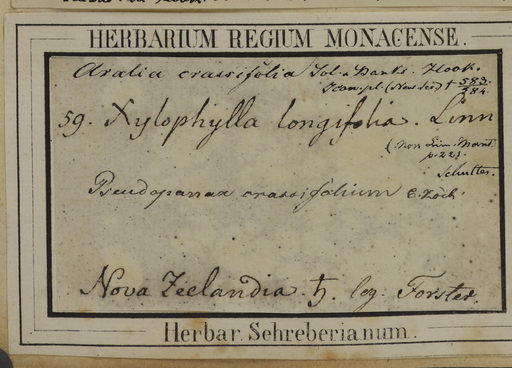 HERBARIUM REGIUM MONACENSE.
Aralia crassifolia Sol. & Banks. Hook.
Icon. pl. (New Ser.) t 583. 584.
59. Xylophylla longifolia. Linn
(non Lin. Mant. p. 221.
Schultes.
Pseudopanax crassifolium C. Koch
Nova Zeelandia. ♄. leg. Forster.
Herbar. Schreberianum.